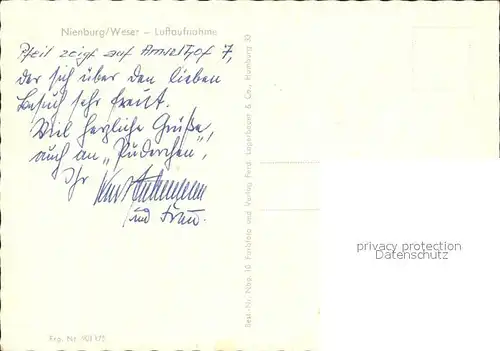 Nienburg/Weser – Luftaufnahme
Pfeil zeigt auf 7,
der sich über den lieben
Besuch sehr freut.
Viel herzliche Grüße,
auch an „Puderchen",
Ihr Kurt
und Frau.
Best.-Nr. Nbg. 10 Farbfoto und Verlag Ferd. Lagerbauer & Co., Hamburg 33
privacy protection
Datenschutz
Reg. Nr.